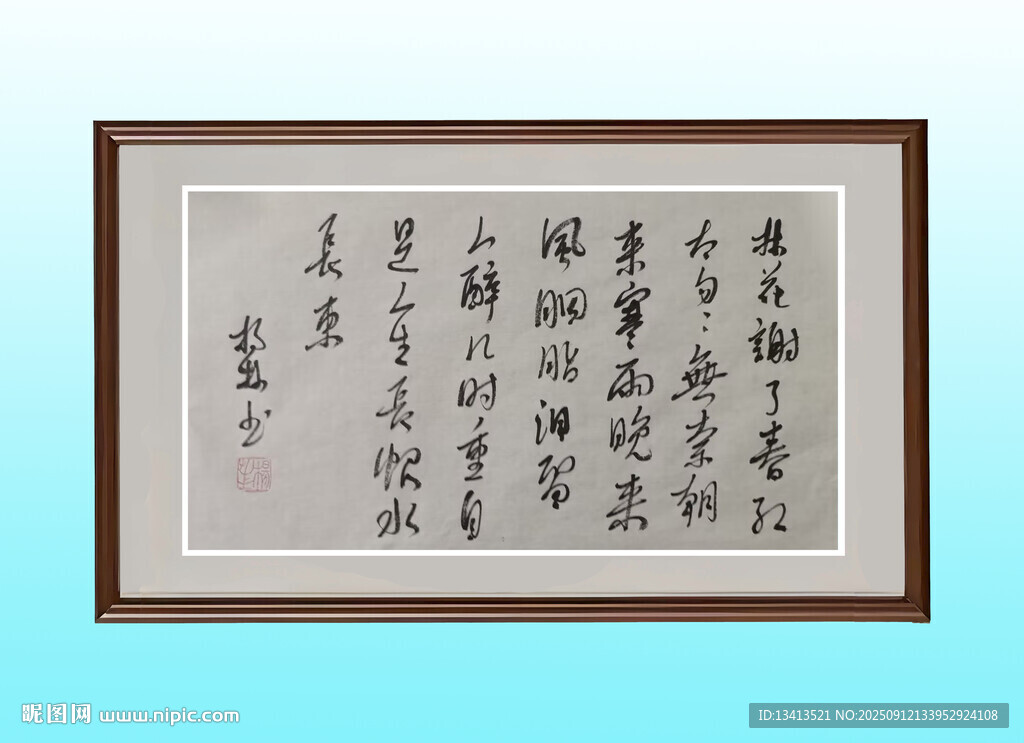 林花謝了春红
太匆〻無奈朝
来寒雨晚来
風胭脂泪留
人醉几时重自
是人生長恨水
長東
杨 书
昵图网 www.nipic.com
ID:13413521 NO:20250912133952924108